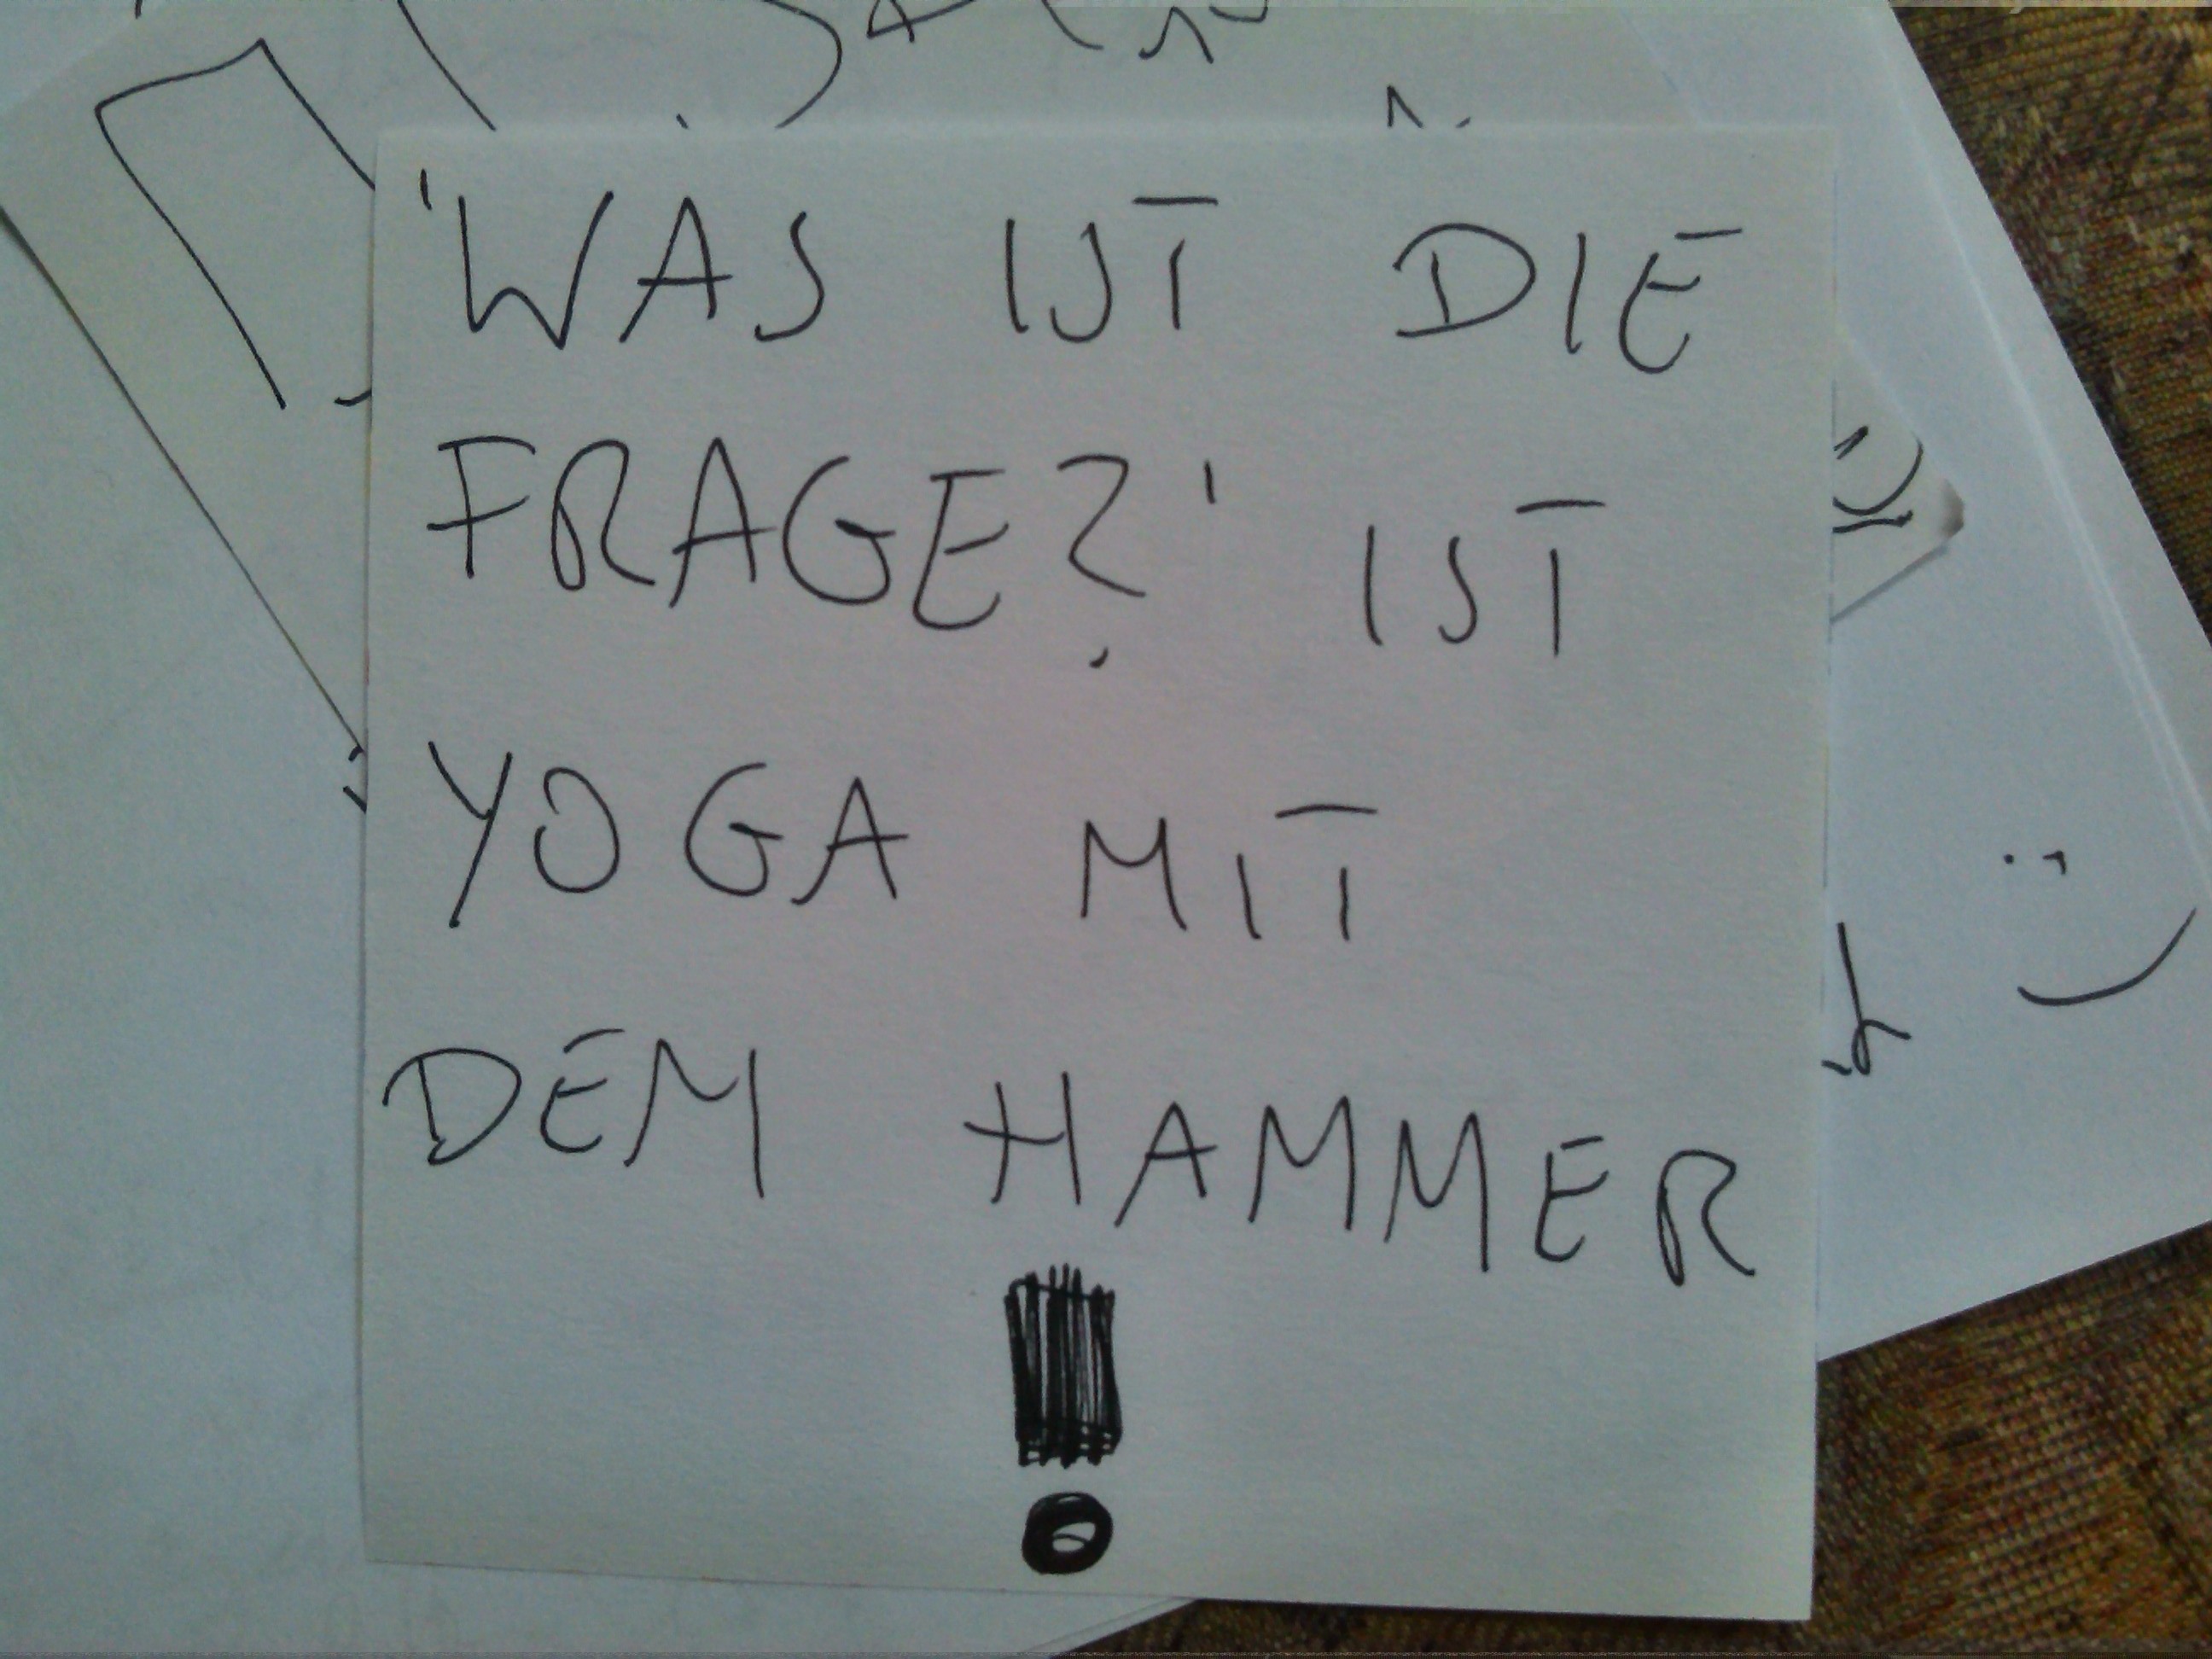 'WAS IST DIE
FRAGE?' IST
YOGA MIT
DEM HAMMER
!